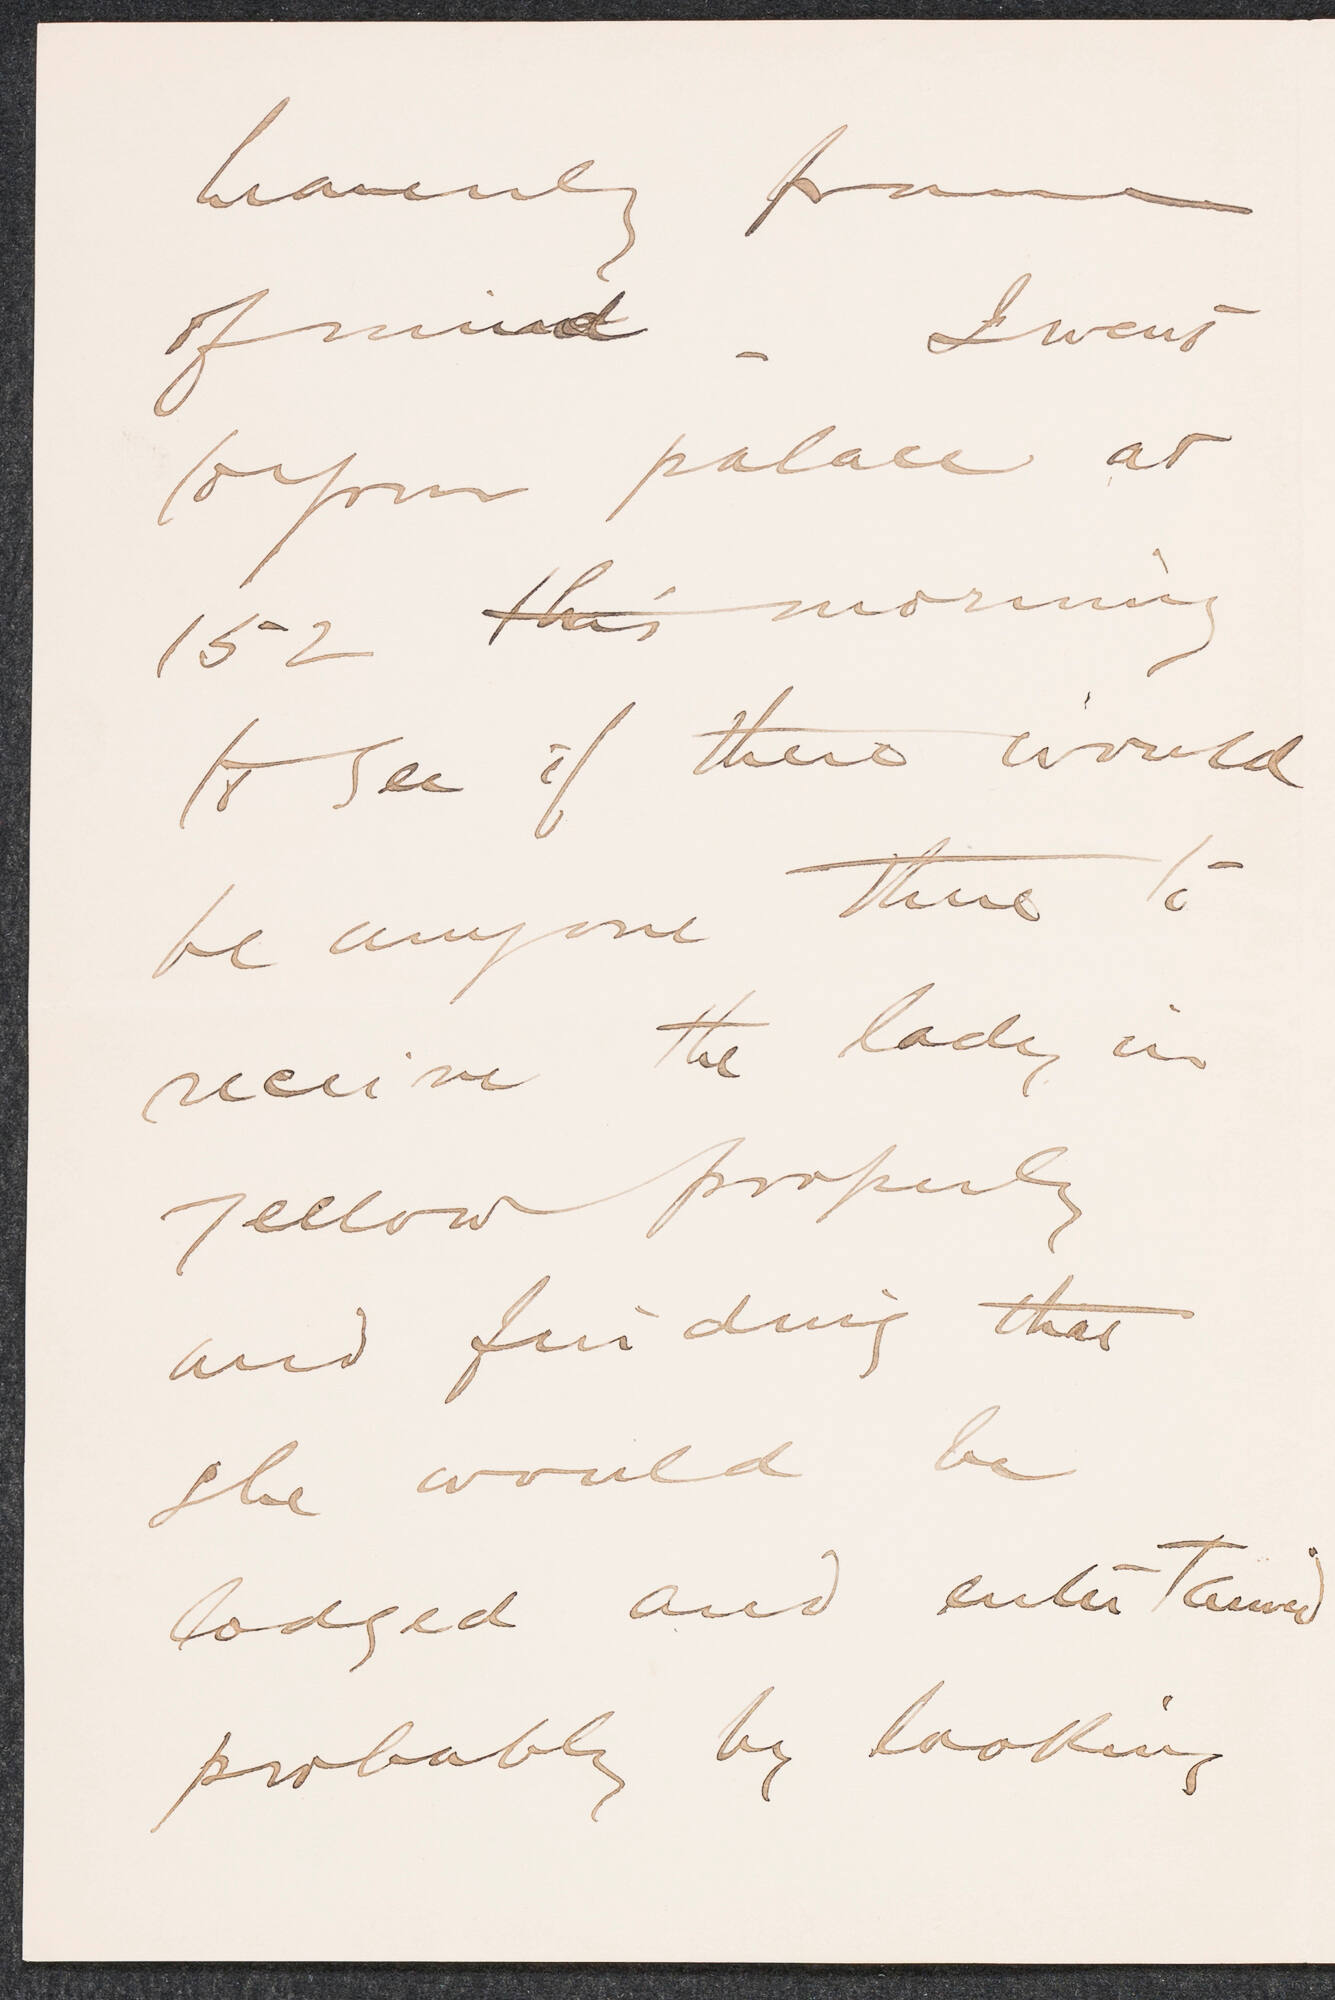 heavenly frame
of mind - I went
to your palace at
152 this morning
to see if there would
be anyone there to
receive the lady in
yellow properly
and finding that
she would be
lodged and entertained
probably by looking